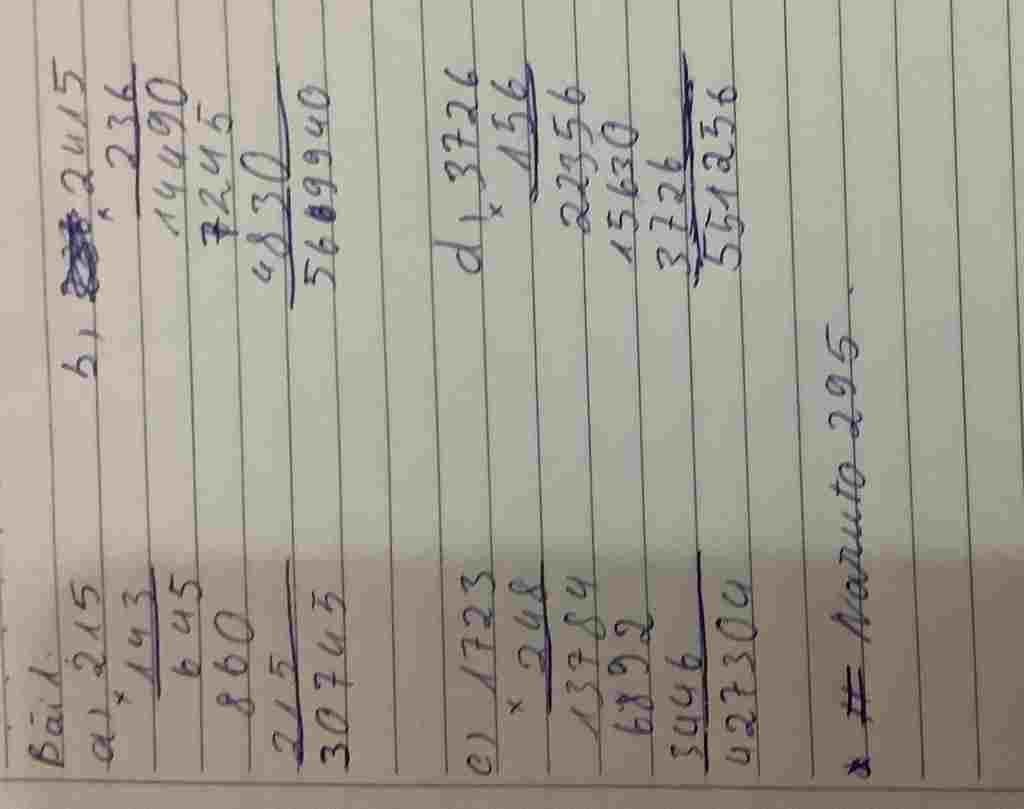 Bài 1.
a, 215
× 143
645
860
215
30745
b, 2415
× 236
14490
7245
4830
569940
c) 1723
× 248
13784
6892
3446
427304
d, 3726
× 156
22356
15630
3726
551256
# Naruto 295.